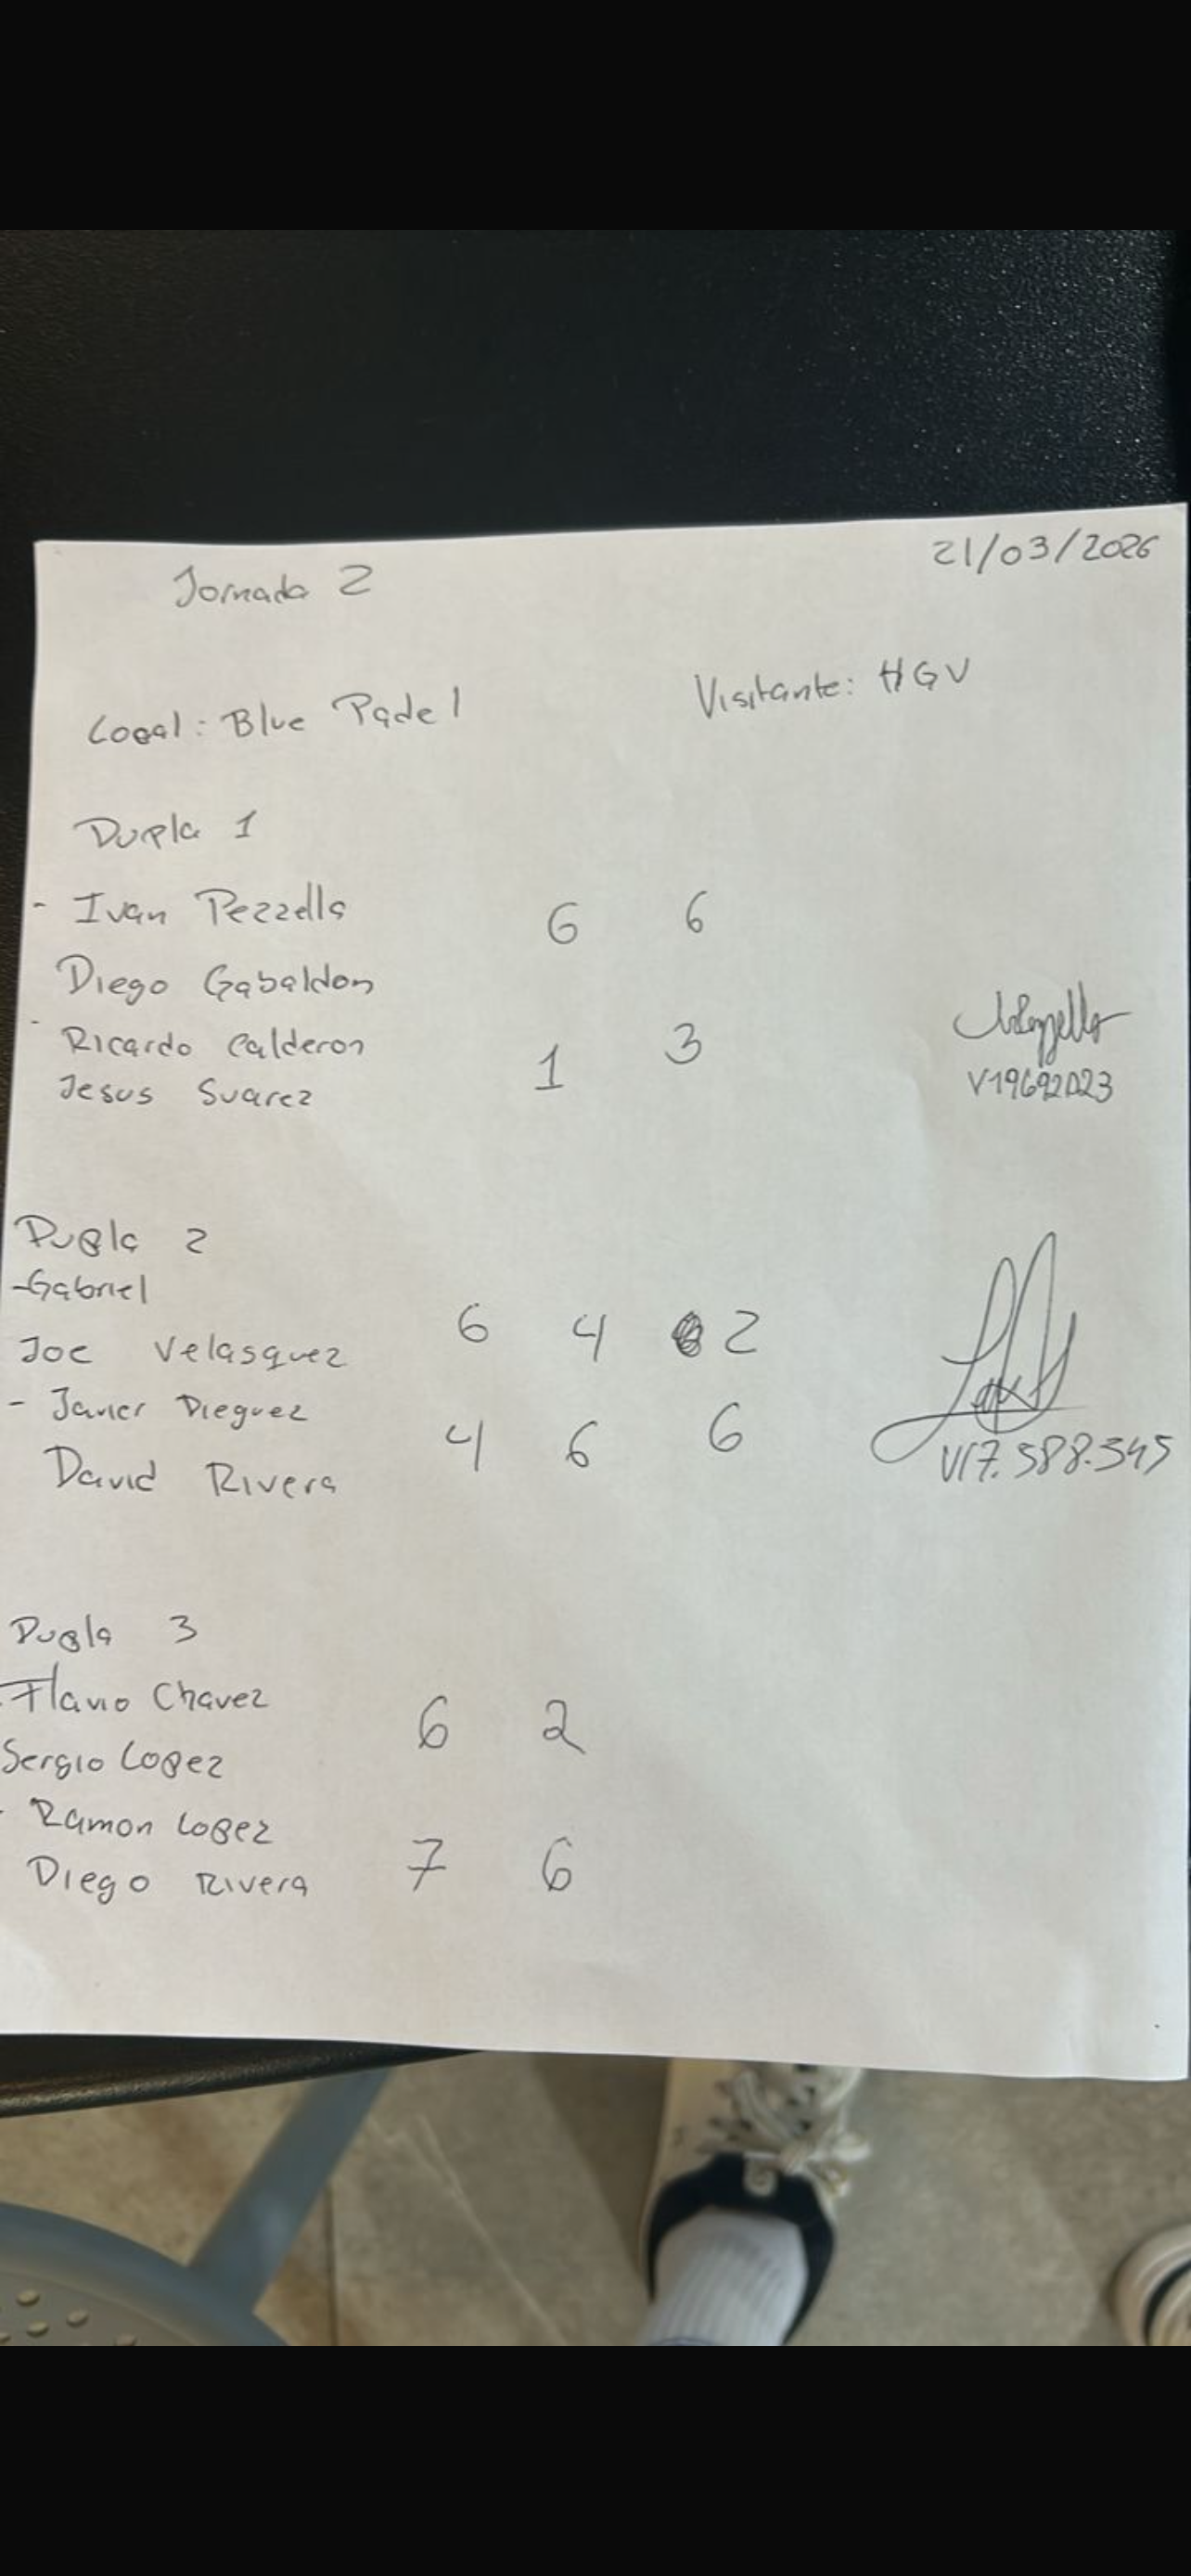 21/03/2026
Jornada 2
Local: Blue Padel
Visitante: HGV
Dupla 1
- Ivan Pezzella 6 6
Diego Gabaldon
- Ricardo Calderon 1 3
Jesus Suarez
V19692023
Dupla 2
- Gabriel
Joe Velasquez 6 4 2
- Javier Dieguez
David Rivera 4 6 6
V17.588.545
Dupla 3
- Flavio Chavez 6 2
Sergio Lopez
- Ramon Lopez
Diego Rivera 7 6